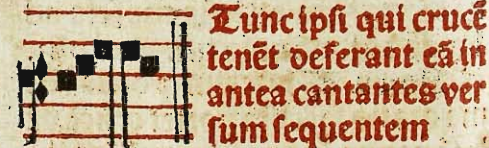 Tunc ipſi qui crucē
tenēt deferant eā in
antea cantantes ver
ſum ſequentem